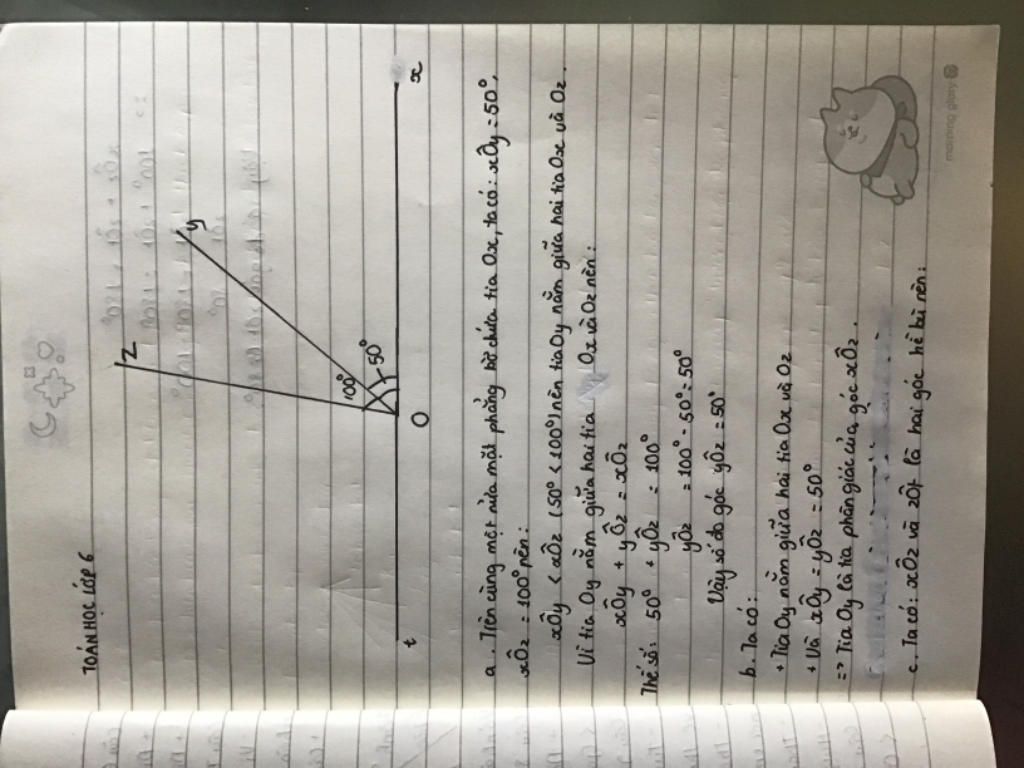 TOÁN HỌC LỚP 6
z
y
100°
50°
t
O
x
a. Trên cùng một nửa mặt phẳng bờ chứa tia Ox, ta có: xÔy = 50°,
xÔz = 100° nên:
xÔy < xÔz (50° < 100°) nên tia Oy nằm giữa hai tia Ox và Oz.
Vì tia Oy nằm giữa hai tia Ox và Oz nên:
xÔy + yÔz = xÔz
Thế số: 50° + yÔz = 100°
yÔz = 100° - 50° = 50°
Vậy số đo góc yÔz = 50°
b. Ta có:
+ Tia Oy nằm giữa hai tia Ox và Oz
+ Và xÔy = yÔz = 50°
=> Tia Oy là tia phân giác của góc xÔz.
c. Ta có: xÔz và zÔt là hai góc kề bù nên:
moing glory